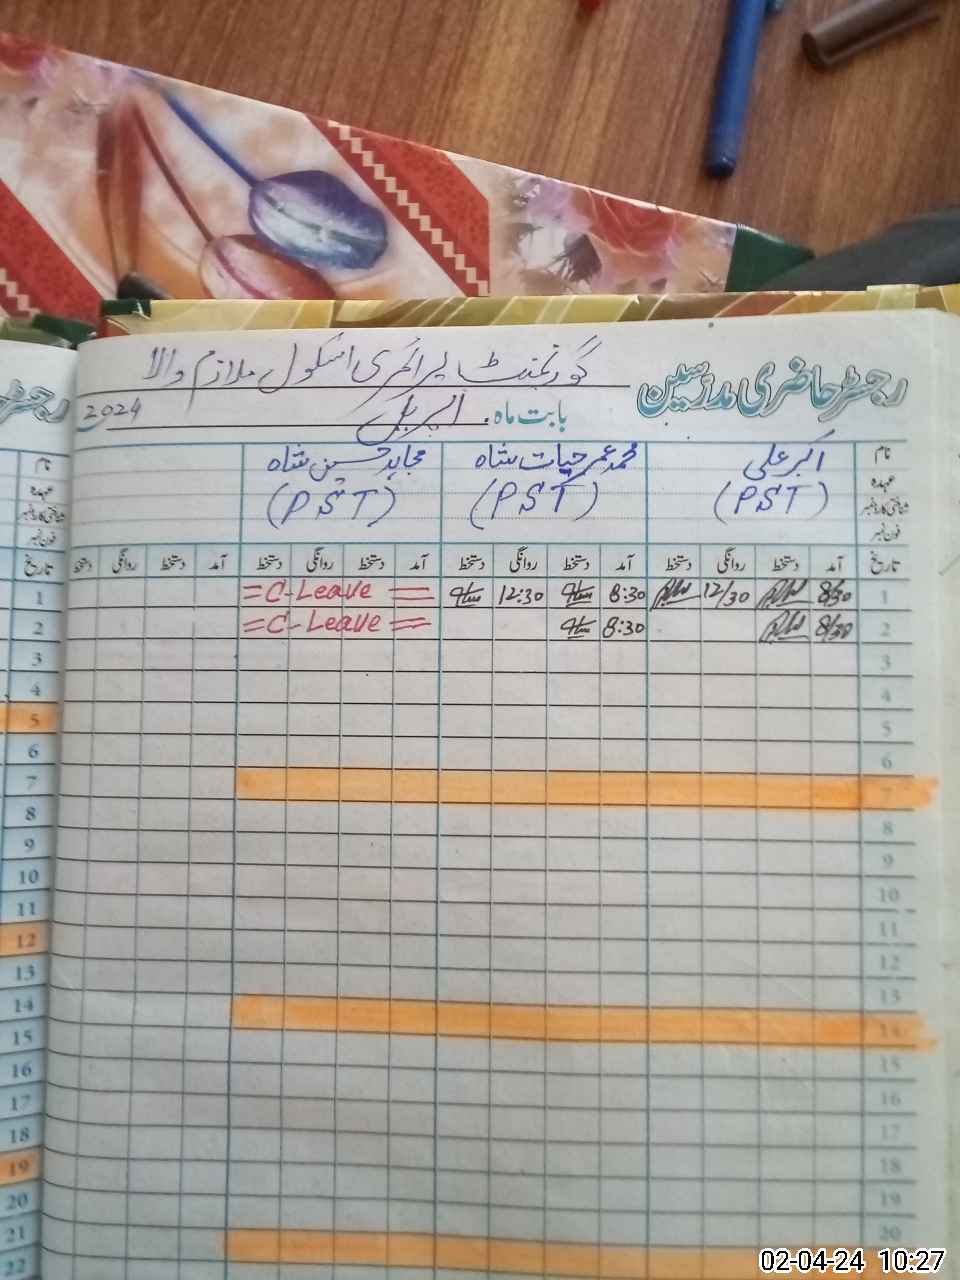 گورنمنٹ پرائمری اسکول ملازم والا
رجسٹر حاضری مدرسین
بابت ماہ اپریل 2024
نام اکبر علی محمد عمر حیات شاہ مجاہد حسین شاہ
عہدہ (PST) (PST) (PST)
شناختی کارڈ نمبر
فون نمبر
تاریخ آمد دستخط روانگی دستخط آمد دستخط روانگی دستخط آمد دستخط روانگی دستخط آمد دستخط روانگی دستخط
1 8/30 12/30 8:30 12:30 =C-Leave=
2 8/30 8:30 =C-Leave=
3
4
5
6
7
8
9
10
11
12
13
14
15
16
17
18
19
20
رجسٹر
نام
عہدہ
شناختی کارڈ نمبر
فون نمبر
تاریخ
1
2
3
4
5
6
7
8
9
10
11
12
13
14
15
16
17
18
19
20
21
22
02-04-24 10:27